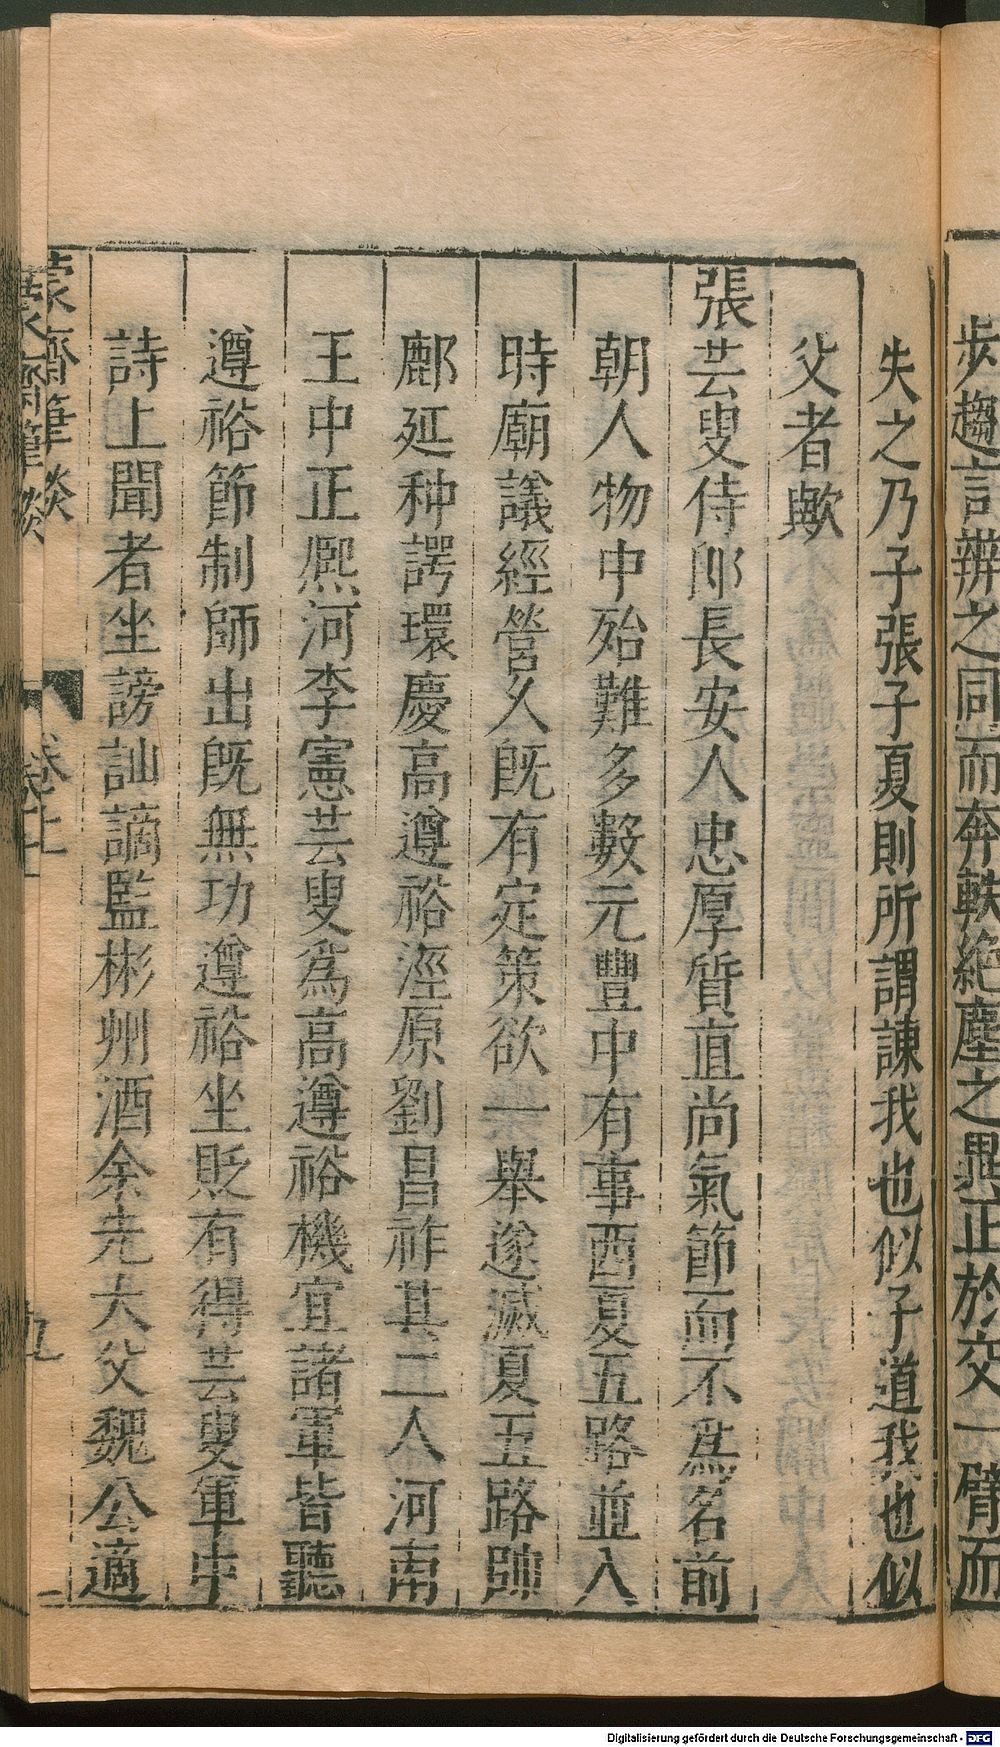 步趨言辨之同而奔軼絕塵之異正於交一臂而
失之乃子張子夏則所謂諫我也似子道我也似
父者歟
張芸叟侍郎長安人忠厚質直尚氣節而不爲名前
朝人物中殆難多數元豐中有事西夏五路並入
時廟議經營久既有定策欲一舉遂滅夏五路帥
鄜延种諤環慶高遵裕涇原劉昌祚其二人河南
王中正熈河李憲芸叟爲高遵裕機宜諸軍皆聽
遵裕節制師出既無功遵裕坐貶有得芸叟軍中
詩上聞者坐謗訕謫監彬州酒余先大父魏公適
蒙齋筆談
卷上
九
蒙齋筆談
卷上
Digitalisierung gefördert durch die Deutsche Forschungsgemeinschaft - DFG